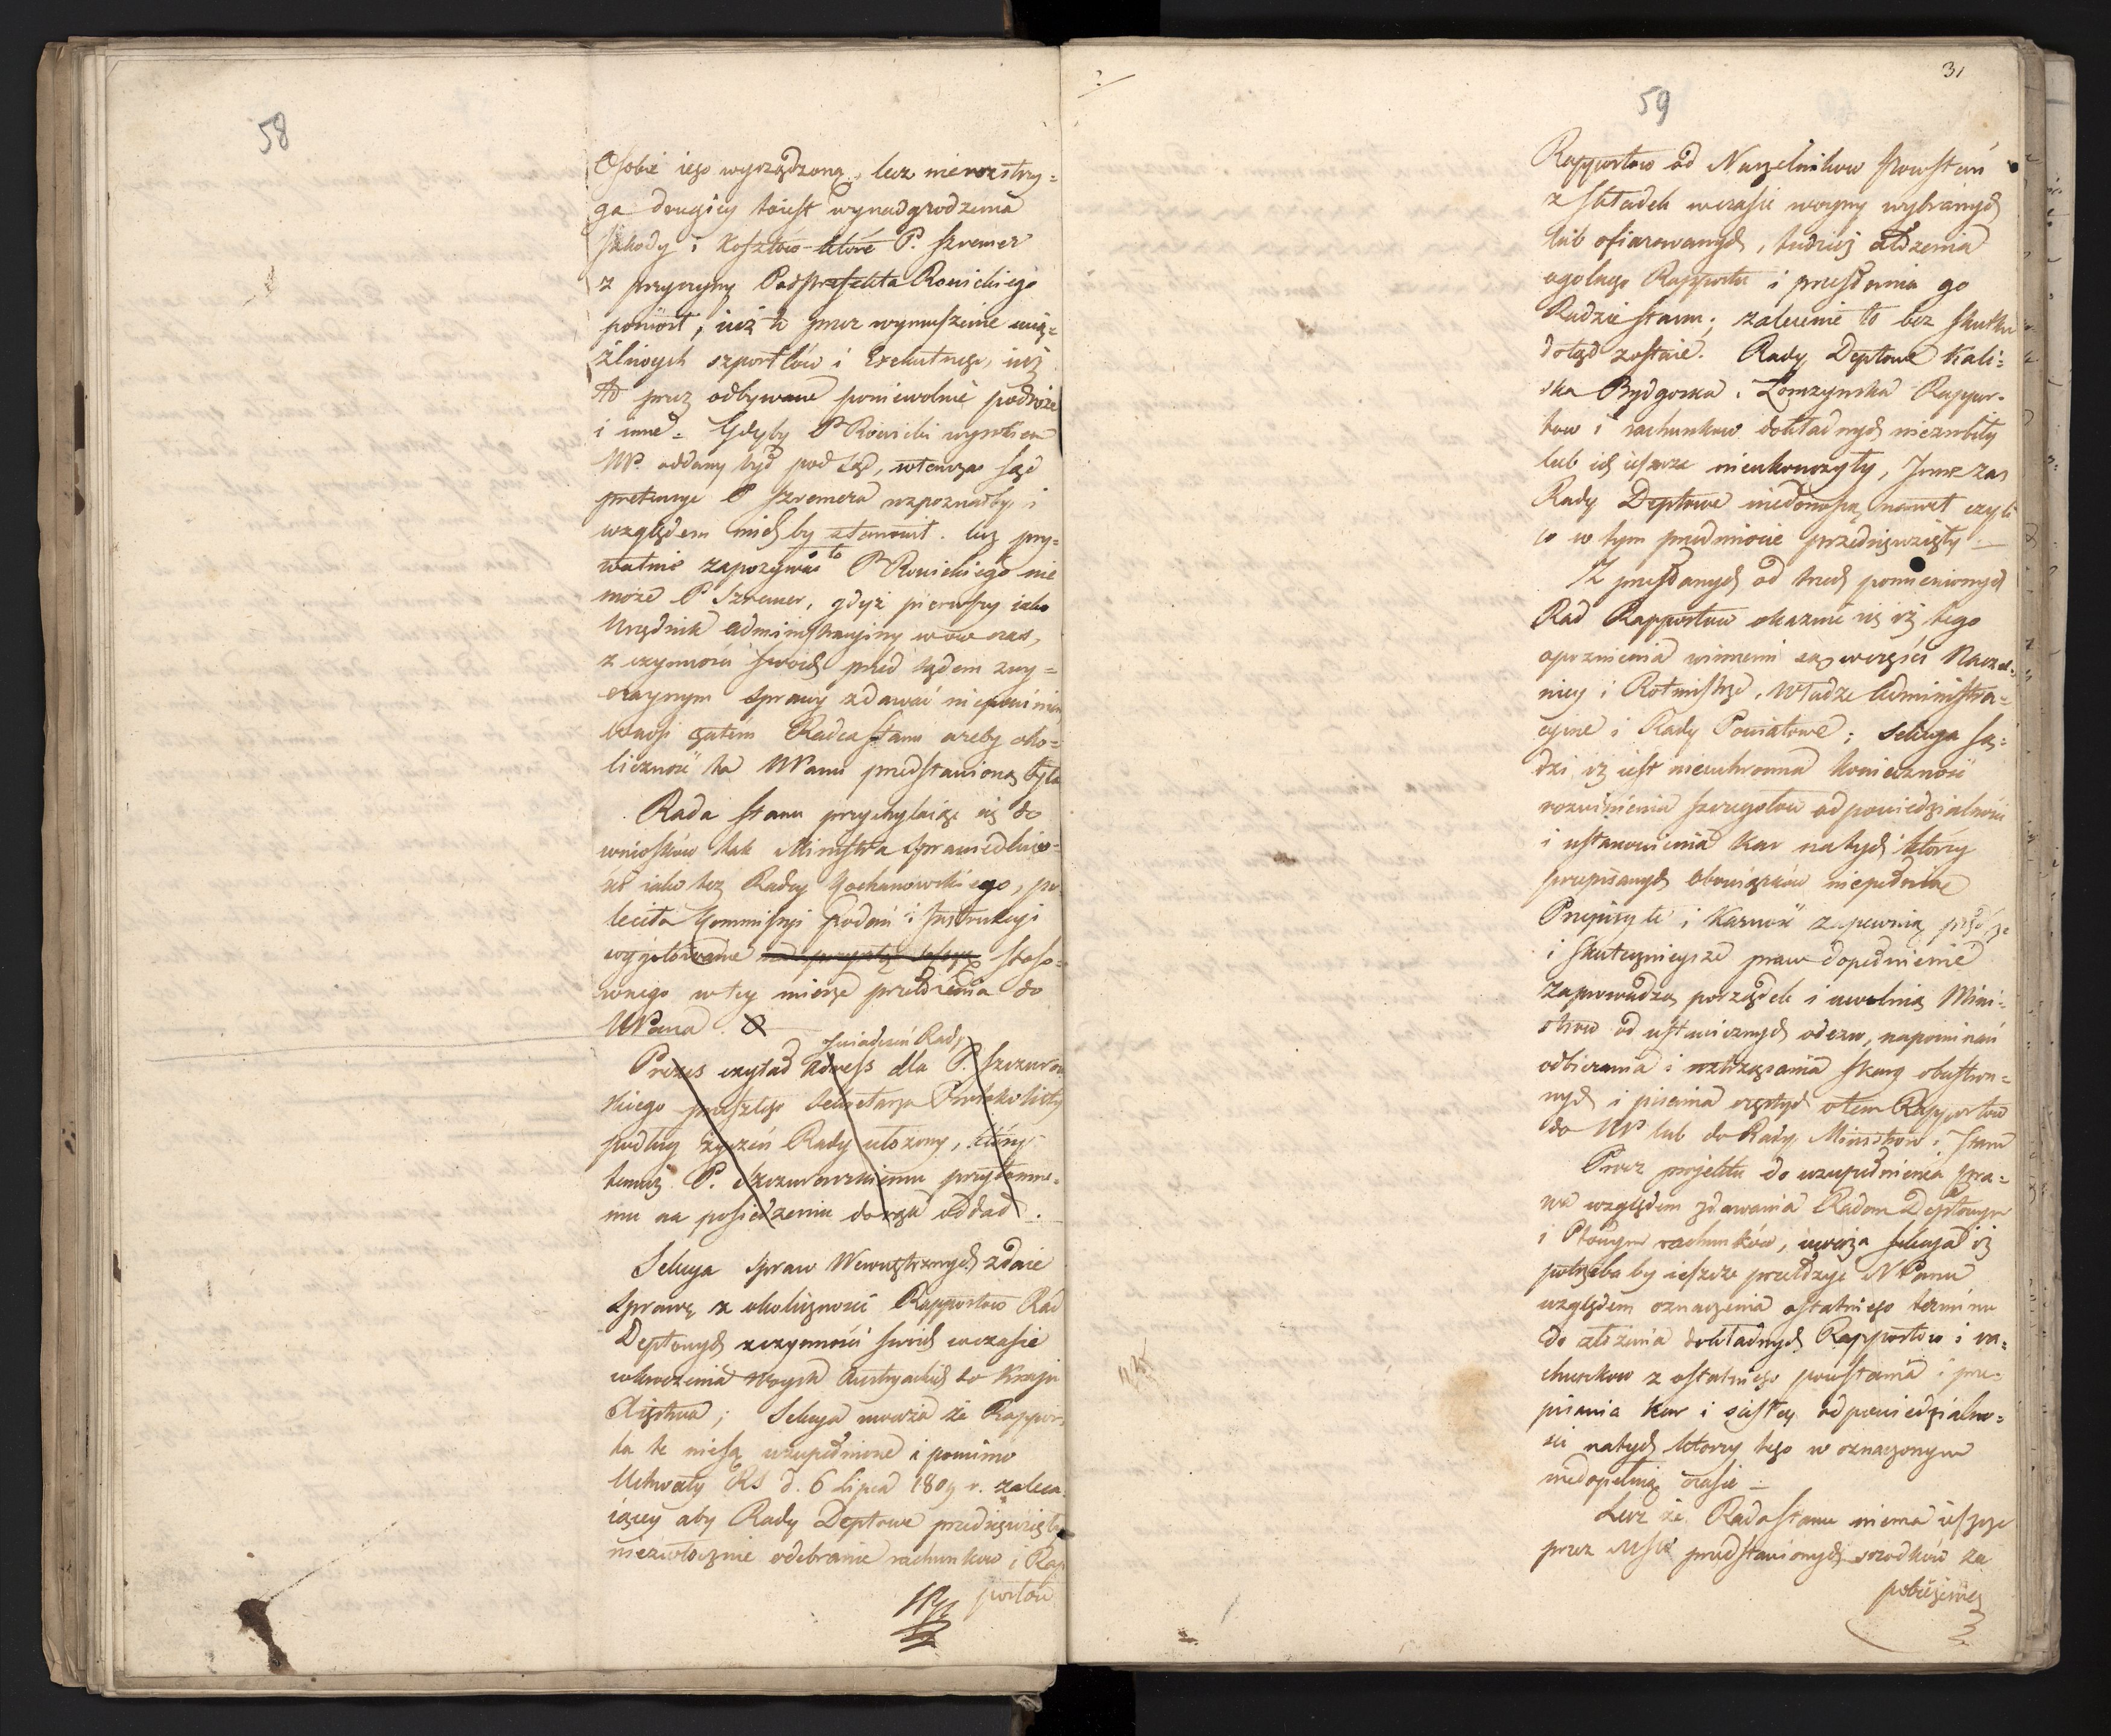 58
Osobie iego wyrządzoną, lecz nierozstrzy=
ga drugiey toiest wynadgrodzenia
szkody i kosztów które P. Szremer
z przyczyny Podprefekta Rowickiego
poniosł, iuż to przez wymuszenie
szportlów i Exekutnego, iuż
to przez odbywane poniewolnie podróże
i inne = Gdyby P Rowicki wyrokiem
NP. oddany był pod Sąd, wtenczas Sąd
pretensye P Szremera rozpoznałby i
względem nich by stanowił. lecz pry=
watnie zapozywać to P Rowickiego nie
może P Szremer, gdyż pierwszy iako
Urzędnik administracyiny wow czas,
z czynności swoich przed sądem zwy=
czaynym sprawy zdawać niepowinien
wnosi zatem Radca Stanu ażeby oko=
liczność ta NPanu przedstawioną była
Rada Stanu przychylaiąc się do
wniosków tak Ministra Sprawiedliwo=
ści iako też Radcy Kochanowskiego, po
leciła Kommissyi Podań i Instrukcyi
wygotowanie stoso=
wnego wtey mierze przełożenia do
NPana.
świadectw Rady
Prezes czytał Adress dla P. Szczurow
skiego przeszłego Sekretarza Protokolisty
podług życzeń Rady ułożony, który
temuż P. Szczurowskiemu przytomne=
mu na posiedzeniu doręcz oddał.
Sekcya Spraw Wewnętrznych zdaie
Sprawę z okoliczności Rapportów Rad
Deptowych z czynności swoich wczasie
wkroczenia woysk Austryackich do Kraju
Xięstwa; Sekcya uważa że Rappor
ta te niesą uzupełnione i pomimo
Uchwały RS d. 6 Lipca 1809 r. zaleca
iącey aby Rady Deptowe przedsięwzięły
niezwłocznie odebranie rachunkow i Rap
portów
31
59
Rapportow od Naczelnikow Powstań
z składek wczasie woyny wybranych
lub ofiarowanych, tudzież złożenia
ogolnego Rapportu i przesłania go
Radzie Stanu; zalecenie to bez skutku
dotąd zostaie. Rady Deptowe Kali=
ska Bydgoska i Łomzynska Rappor=
tow i rachunkow dokładnych niezrobiły
lub ich ieszcze nieukończyły, Inne zas
Rady Deptowe niedonoszą nawet czyli
co w tym przedmiocie przedsięwzięły —
Z przesłanych od trzech pomienionych
Rad Rapportow okazuie się iż tego
opoznienia winnemi są wczęści Naczel=
nicy i Rotmistrze, Władze Administra=
cyine i Rady Powiatowe; Sekcya są=
dzi iż iest nieuchronna konieczność
rozwinienia szczegołow odpowiedzialności
i ustanowienia kar natych ktorzy
przepisanych obowiązków niepełnią
Przepisy te i Karność zapewnią prędsze
i skutecznieysze praw dopełnienie
zaprowadzą porządek i uwolnią Mini=
strow od ustawicznych odezw, napominań
odbierania i roztrząsania skarg obustron=
nych i pisania częstych otem Rapportow
do NP lub do Rady Ministrow i Stanu
Procz projektu do uzupełnienia pra=
wa względem zdawania Radom Deptowym
i Ptowym rachunków, uważa Sekcya iż
potrzeba by ieszcze przełożyć NPanu
względem oznaczenia ostatniego terminu
do złożenia dokładnych Rapportow i ra=
chunkow z ostatniego powstania i prze=
pisania kar i ścisłey odpowiedzialno=
ści natych ktorzy tego w oznaczonym
niedopełnią czasie —
Lecz że Rada Stanu niema ieszcze
przez MSW przedstawionych srodków za
pobieżenia